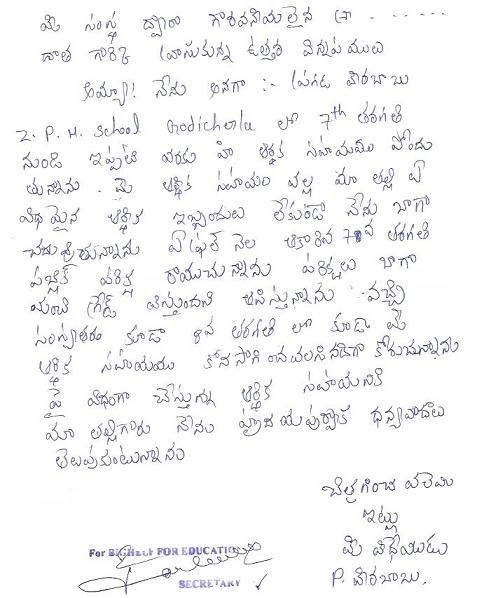 మీ సంస్థ ద్వారా గౌరవనీయులైన శ్రీ . . . . . . .
దాత గారికి వ్రాసుకున్న ఉత్తర విన్నపములు
అమ్మా! నేను అనగా :- ప్రగడ వీరబాబు
Z. P. H. School Godicherla లో 7th తరగతి
నుండి ఇప్పటి వరకు మీ ఆర్థిక సహాయము పొందు
తున్నాను. మీ ఆర్థిక సహాయం వల్ల మా తల్లి ఏ
విధమైన ఆర్థిక ఇబ్బందులు లేకుండా నేను బాగా
చదువుతున్నాను ఏప్రిల్ నెల ఆఖరిన 7వ తరగతి
పబ్లిక్ పరీక్ష రాయుచున్నాను పరీక్షలు బాగా
మంచి గ్రేడ్ వస్తుందని ఆశిస్తున్నాను. వచ్చే
సంవత్సరం కూడా 8వ తరగతి లో కూడా మీ
ఆర్థిక సహాయము కొనసాగించవలసినదిగా కోరుచున్నాను
పై విధంగా చేస్తున్న ఆర్థిక సహాయానికి
మా తల్లిగారు నేను హృదయపూర్వక ధన్యవాదాలు
తెలుపుకుంటున్నాను
చిత్తగించ వలెను
ఇట్లు
మీ విధేయుడు
P. వీరబాబు.
For BIGHELP FOR EDUCATION
SECRETARY